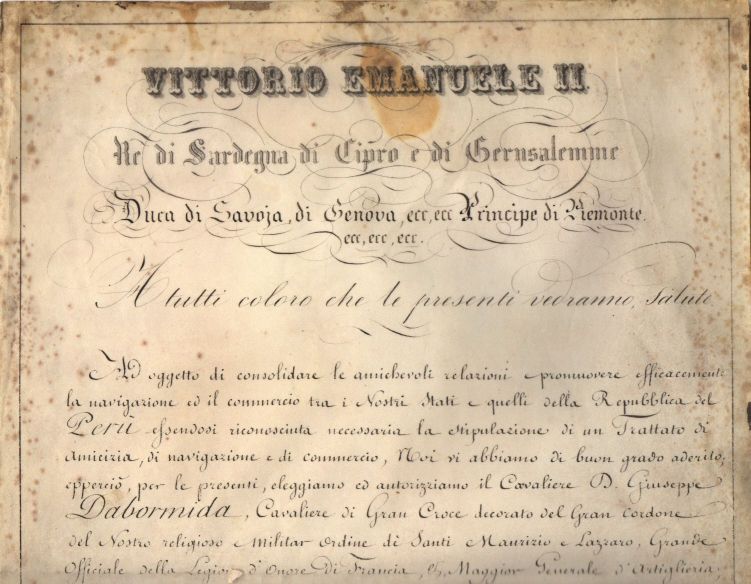 VITTORIO EMANUELE II
Re di Sardegna di Cipro e di Gerusalemme
Duca di Savoja, di Genova, ecc, ecc Principe di Piemonte.
ecc, ecc, ecc.
A tutti coloro che le presenti vedranno, salute
Ad oggetto di consolidare le amichevoli relazioni e promuovere efficacemente
la navigazione ed il commercio tra i Nostri Stati e quelli della Repubblica del
Perù essendosi riconosciuta necessaria la stipulazione di un Trattato di
Amicizia, di navigazione e di commercio, Noi vi abbiamo di buon grado aderito;
epperciò, per le presenti, eleggiamo ed autorizziamo il Cavaliere D. Giuseppe
Dabormida, Cavaliere di Gran Croce decorato del Gran Cordone
del Nostro religioso e Militar Ordine di Santi Maurizio e Lazzaro, Grande
Officiale della Legion d'Onore di Francia, Maggior Generale d'Artiglieria,